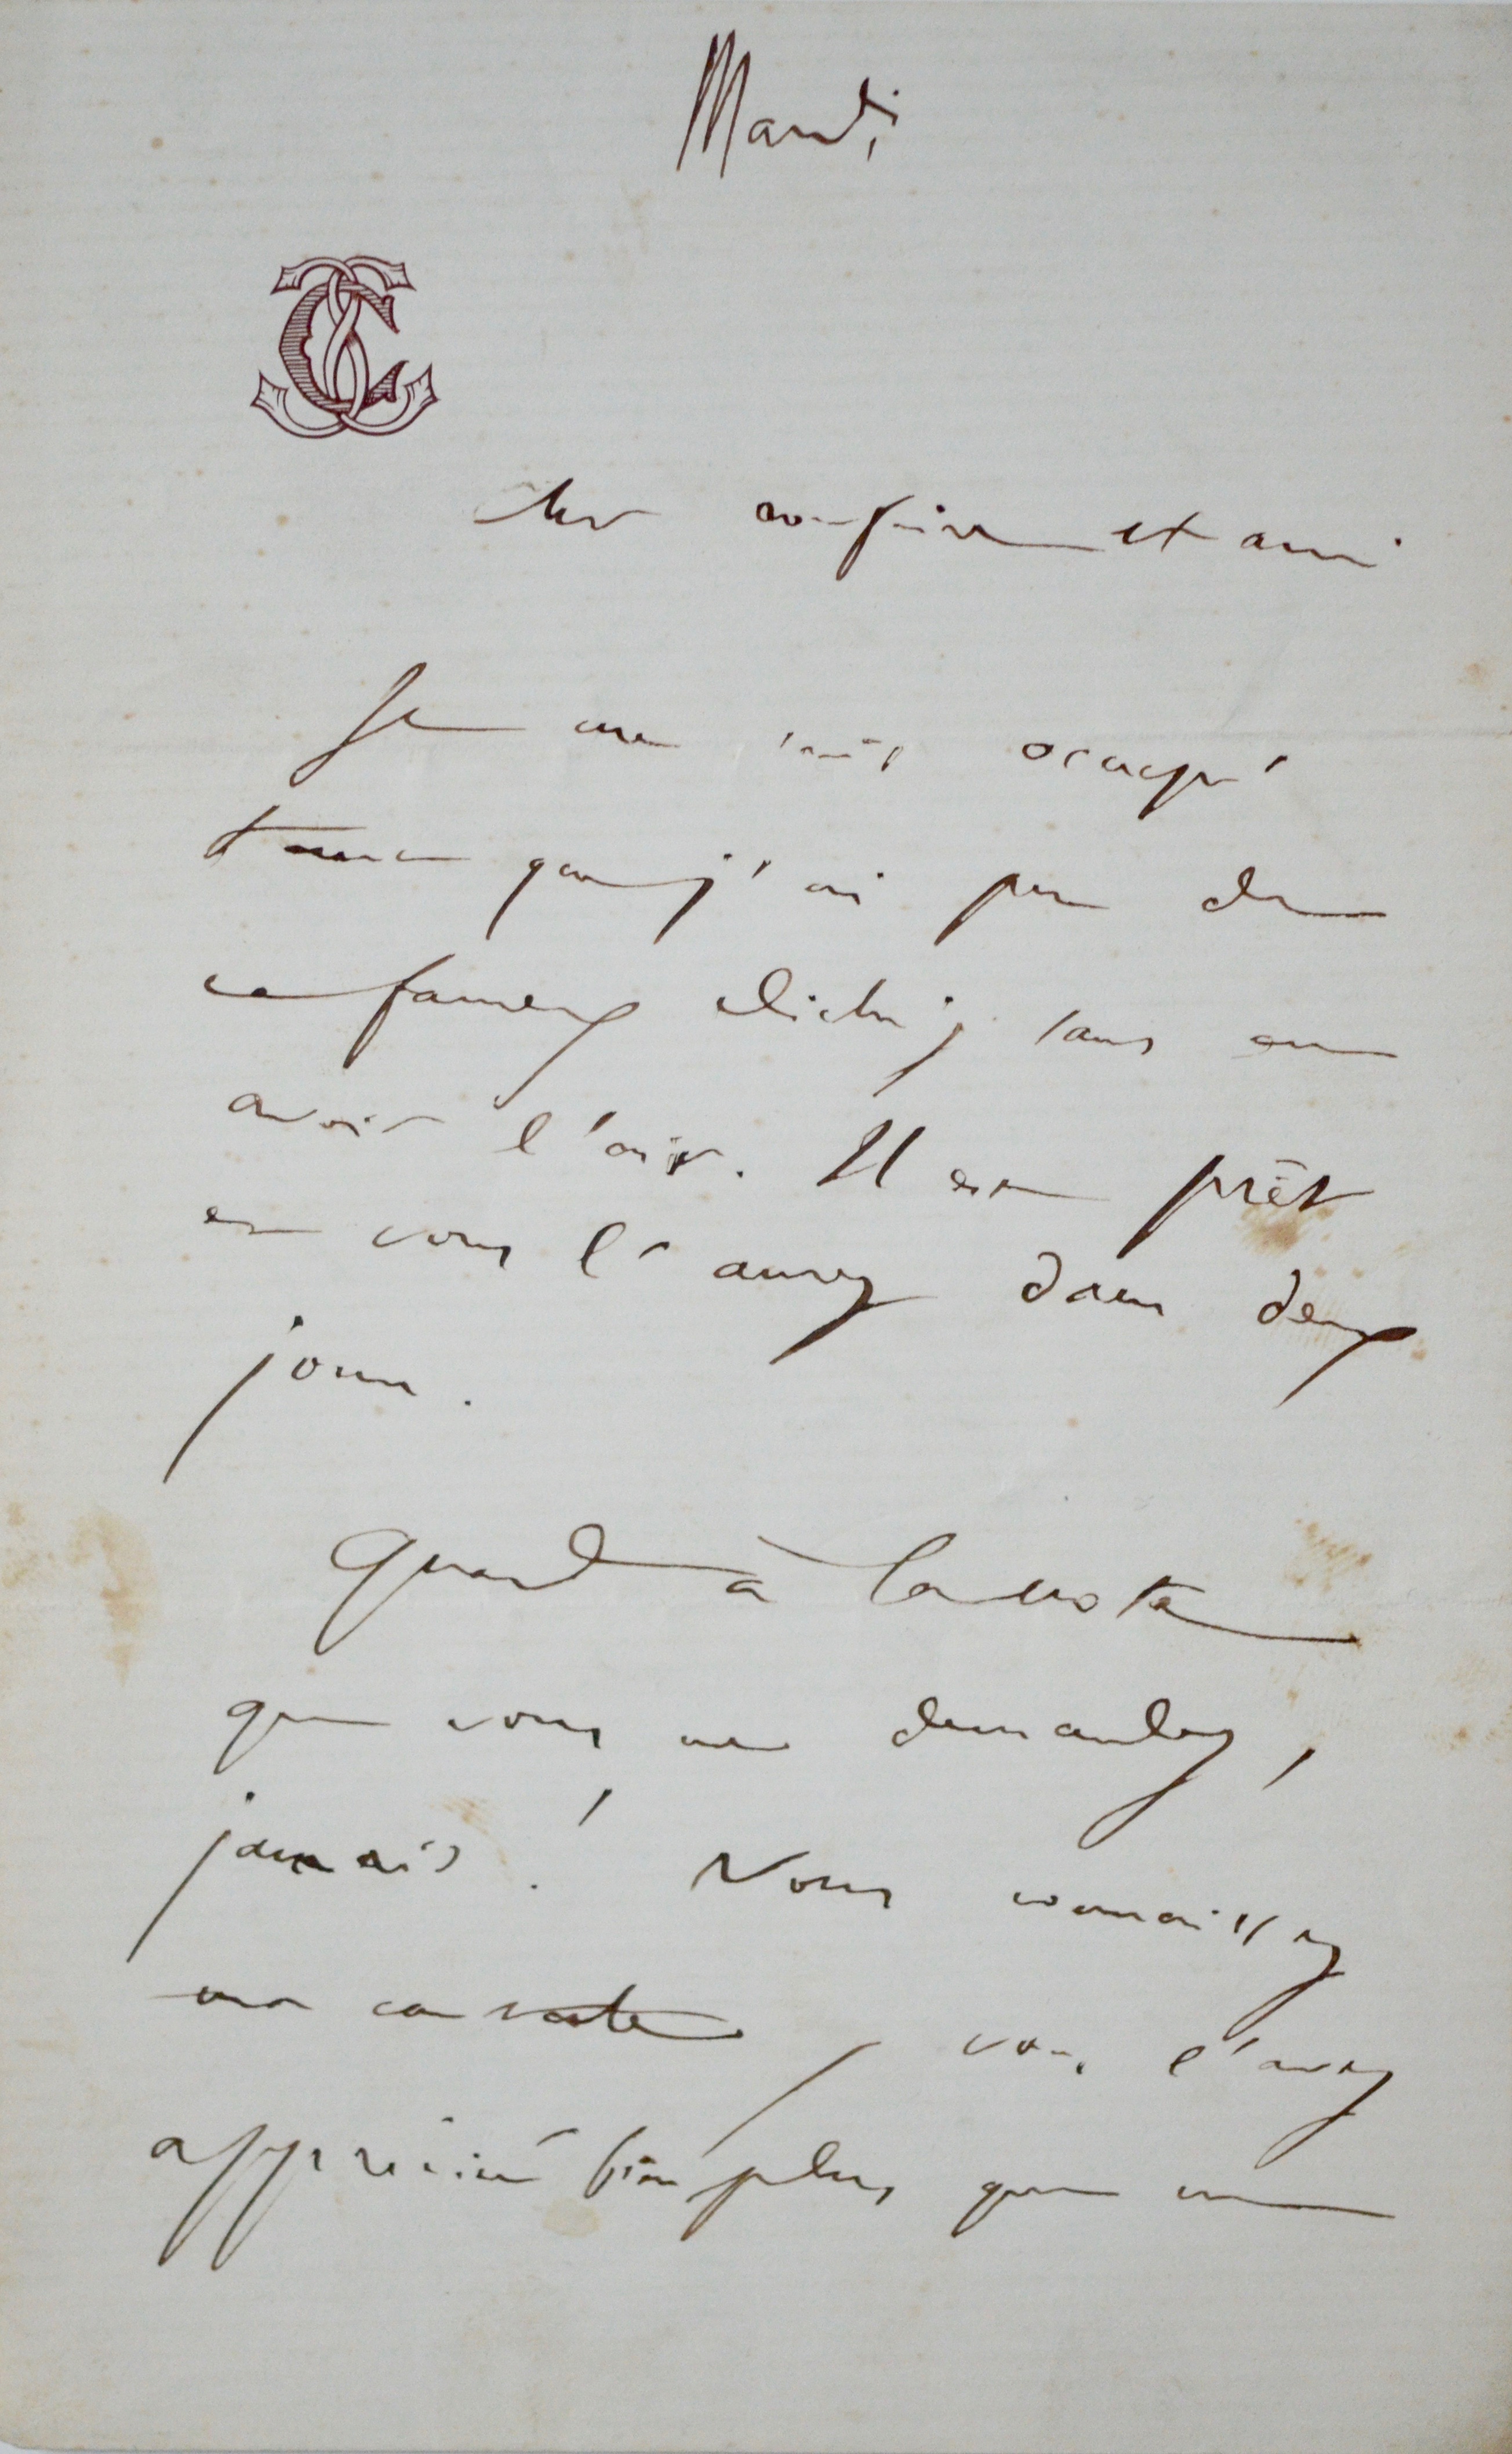 Mardi
Cher confrère et ami
Je me suis occupé
tant que j'ai pu de
ce fameux cliché, sans en
avoir l'air. Il est prêt
et vous l'aurez dans deux
jours.
Quand à la note
que vous me demandez,
jamais ! Vous connaissez
ma
vous l'avez
apprécié bien plus que ne